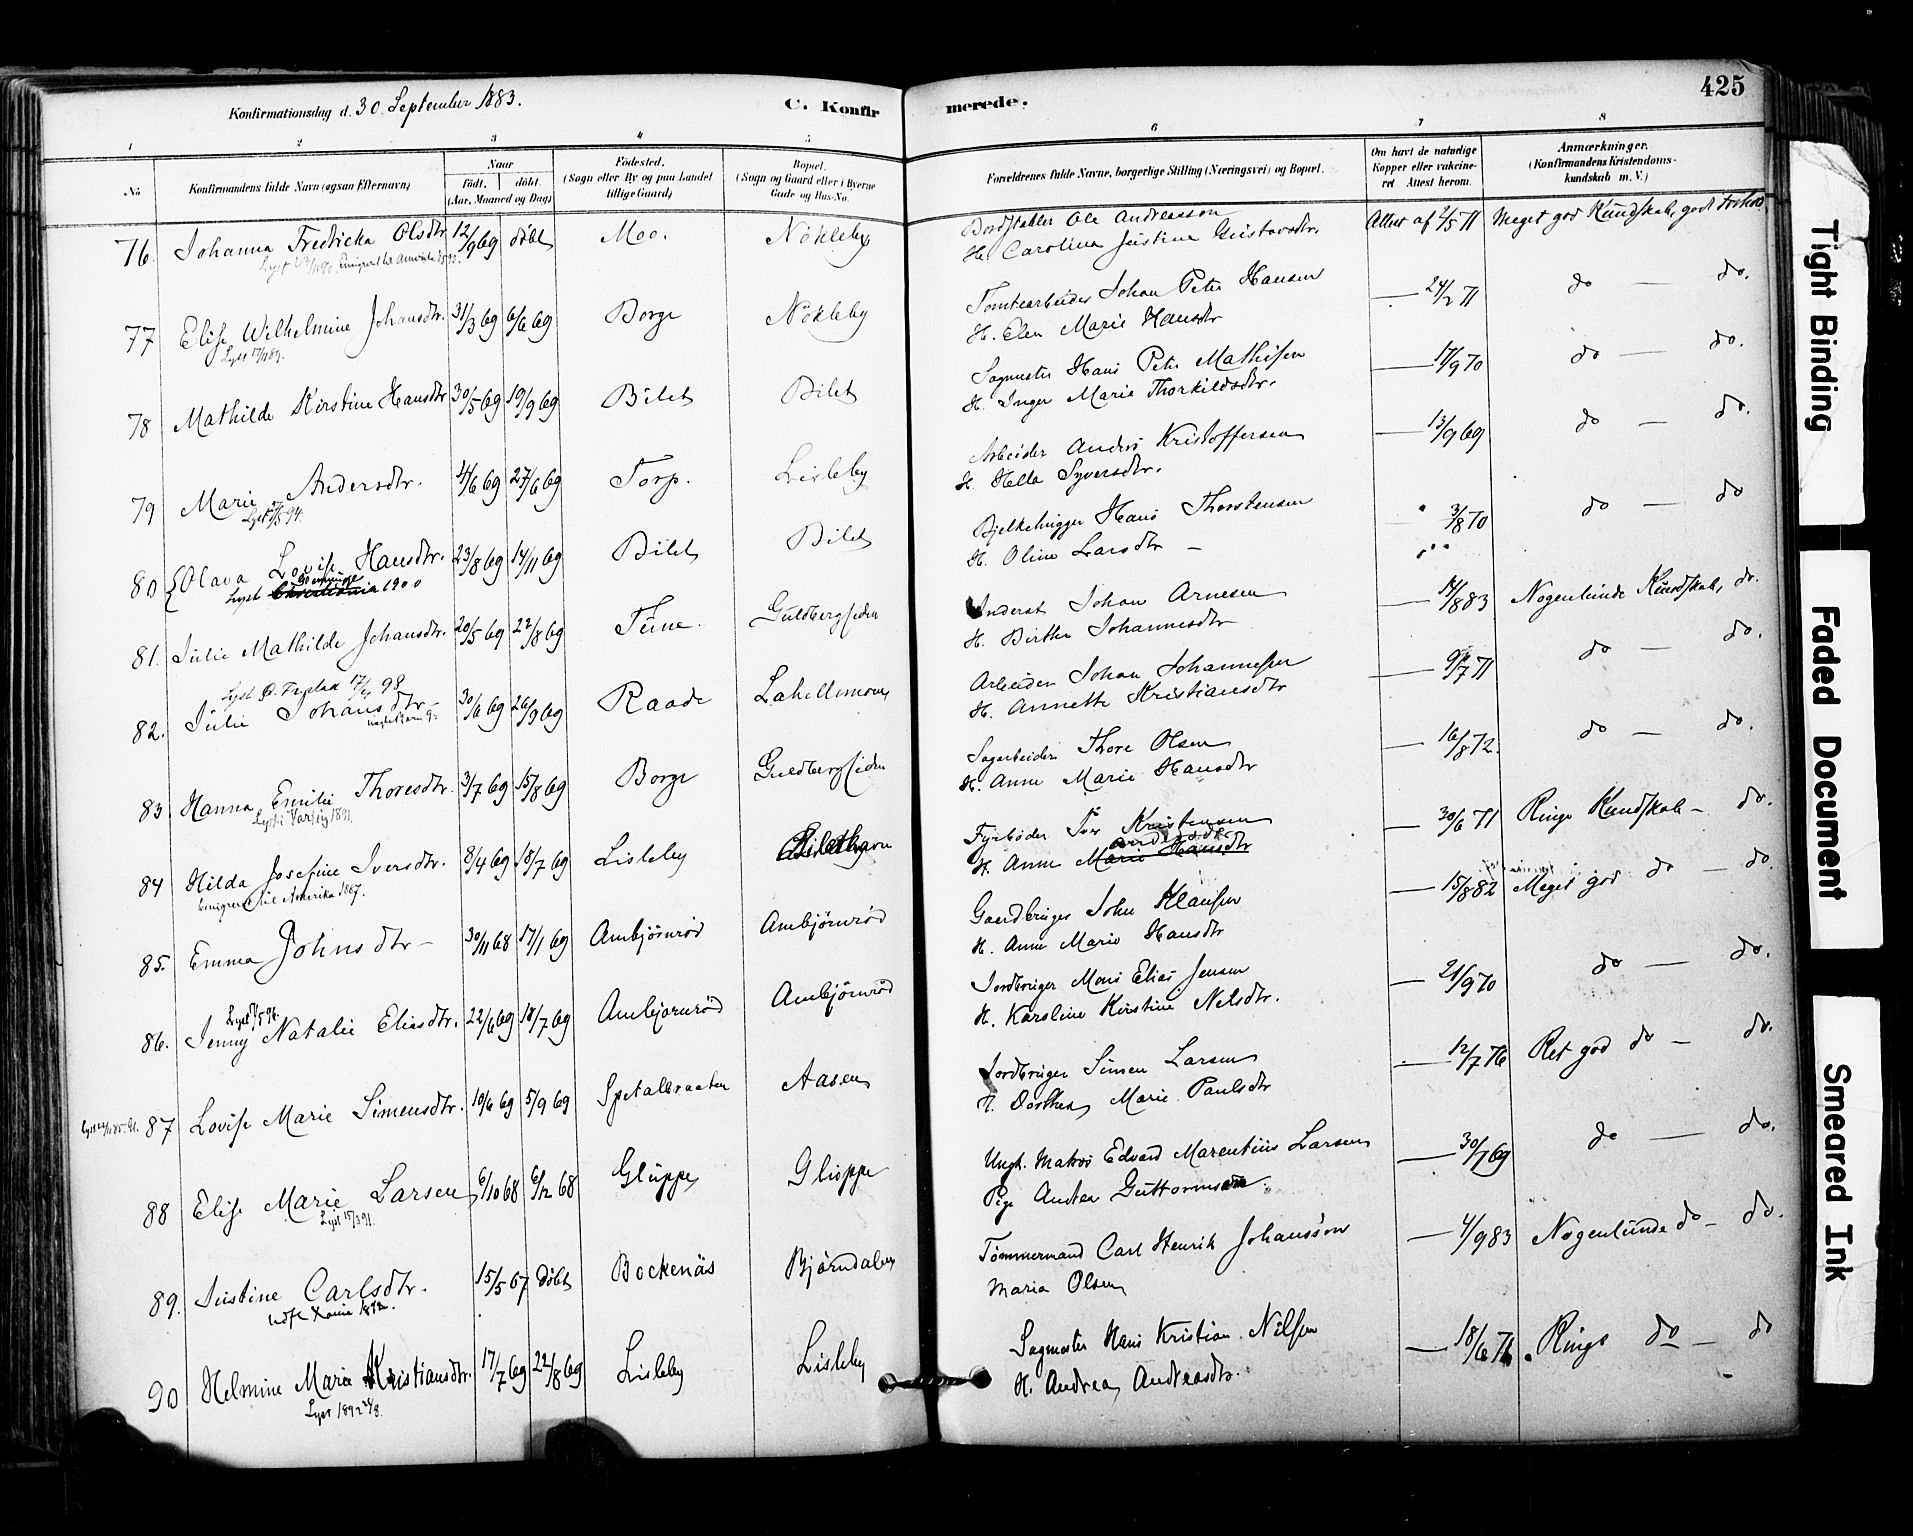 Konfirmationsdag d. 30 September 1883. C. Konfirmerede. 425
1 2 3 4 5 6 7 8
No. Konfirmandens fulde Navn (ogsaa Efternavn) Naar født. døbt. (Aar, Maaned og Dag) Fødested. (Sogn eller By og paa Landet tillige Gaard) Bopæl. (Sogn og Gaard eller i Byerne Gade og Hus-No. Forældrenes fulde Navne, borgerlige Stilling (Næringsvei) og Bopæl. Om havt de naturlige Kopper eller vakcineret Attest herom. Anmærkninger. (Konfirmandens Kristendomskundskab m. V.)
76. Johanna Fredricka Olsdtr 12/9 69 døbt Moo. Nökleby Bordstabler Ole Andreasson Attest af 2/5 71 Meget god Kundskab, godt Forhold
H. Carolina Justina Gustavsdtr.
77 Elise Wilhelmine Johansdtr. 31/3 69 6/6 69 Borge Nökleby Tomtearbeider Johan Peter Hansen — 24/2 71 do — do.
Lyst 17/11 89. H. Elen Marie Hansdtr
78 Mathilde Kirstine Hansdtr 30/5 69 19/9 69 Bilet Bilet Sagmester Hans Peter Mathisen — 17/9 70 do — do.
H. Inger Marie Thorkildsdtr.
79 Marie Andersdtr. 4/6 69 27/6 69 Torp. Lisleby Arbeider Anders Kristoffersen — 13/9 69 do — do.
H. Helle Syversdtr.
80 Olava Lovise Hansdtr. 23/8 69 14/11 69 Bilet Bilet Bjelkehugger Hans Thorstensen 3/8 70 do — do
Lyst 1900 H. Oline Larsdtr —
81. Julie Mathilde Johansdtr. 20/5 69 22/8 69 Tune. Guldbergsiden Inderst Johan Arnesen — 14/8 83 Nogenlunde Kundskab, do.
H. Birthe Johannesdtr
82. Julie Johansdtr — 30/6 69 26/9 69 Raade Lahellemoen Arbeider Johan Johannesen 9/7 71 do — do.
H. Annette Kristiansdtr
83 Hanna Emilie Thoresdtr. 3/7 69 15/8 69 Borge Guldbergsiden Sagarbeider Thore Olsen — 16/8 72. do — do.
Lyst i Varteig 1891. H. Anne Marie Hansdtr
84 Hilda Josefine Iversdtr. 8/4 69 18/7 69 Lisleby Fyrbøder Iver Kristensen — 30/6 71 Ringe Kundskab — do.
Emigreret til Amerika 1887. H. Anne Marie Hansdtr
85. Emma Johnsdtr — 30/11 68 17/1 69 Ambjörnröd Ambjörnröd Gaardbruger John Klausen — 15/8 82 Meget god do — do
H. Anne Marie Hansdtr
86. Jenny Natalie Eliasdtr. 22/6 69 18/7 69 Ambjörnröd Ambjörnröd Jordbruger Mons Elias Jensen — 21/9 70 do — do.
H. Karoline Kirstine Nelsdtr.
87 Lovise Marie Simensdtr. 10/6 69 5/9 69 Spetalsraaten Aasen Jordbruger Simen Larsen — 12/7 76 Ret god do — do.
H. Dorthea Marie Paulsdtr
88 Elise Marie Larsen 6/10 68 6/12 68 Gluppe Gluppe Ungk. Matros Edvard Marentius Larsen — 30/7 69 do — do.
Lyst 15/3 91. Pige Andrea Guttormsen
89. Justine Carlsdtr. 15/5 67 døbt Bockenäs Bjørndalen Tømmermand Carl Henrik Johansson — 4/9 83 Nogenlunde do — do.
Maria Olsen
90 Helmine Marie Kristiansdtr. 17/7 69 22/8 69 Lisleby Lisleby Sagmester Hans Kristian Nilsen — 18/6 71 Ringe do — do
H. Andrea Andreasdtr.
Tight Binding
Faded Document
Smeared Ink